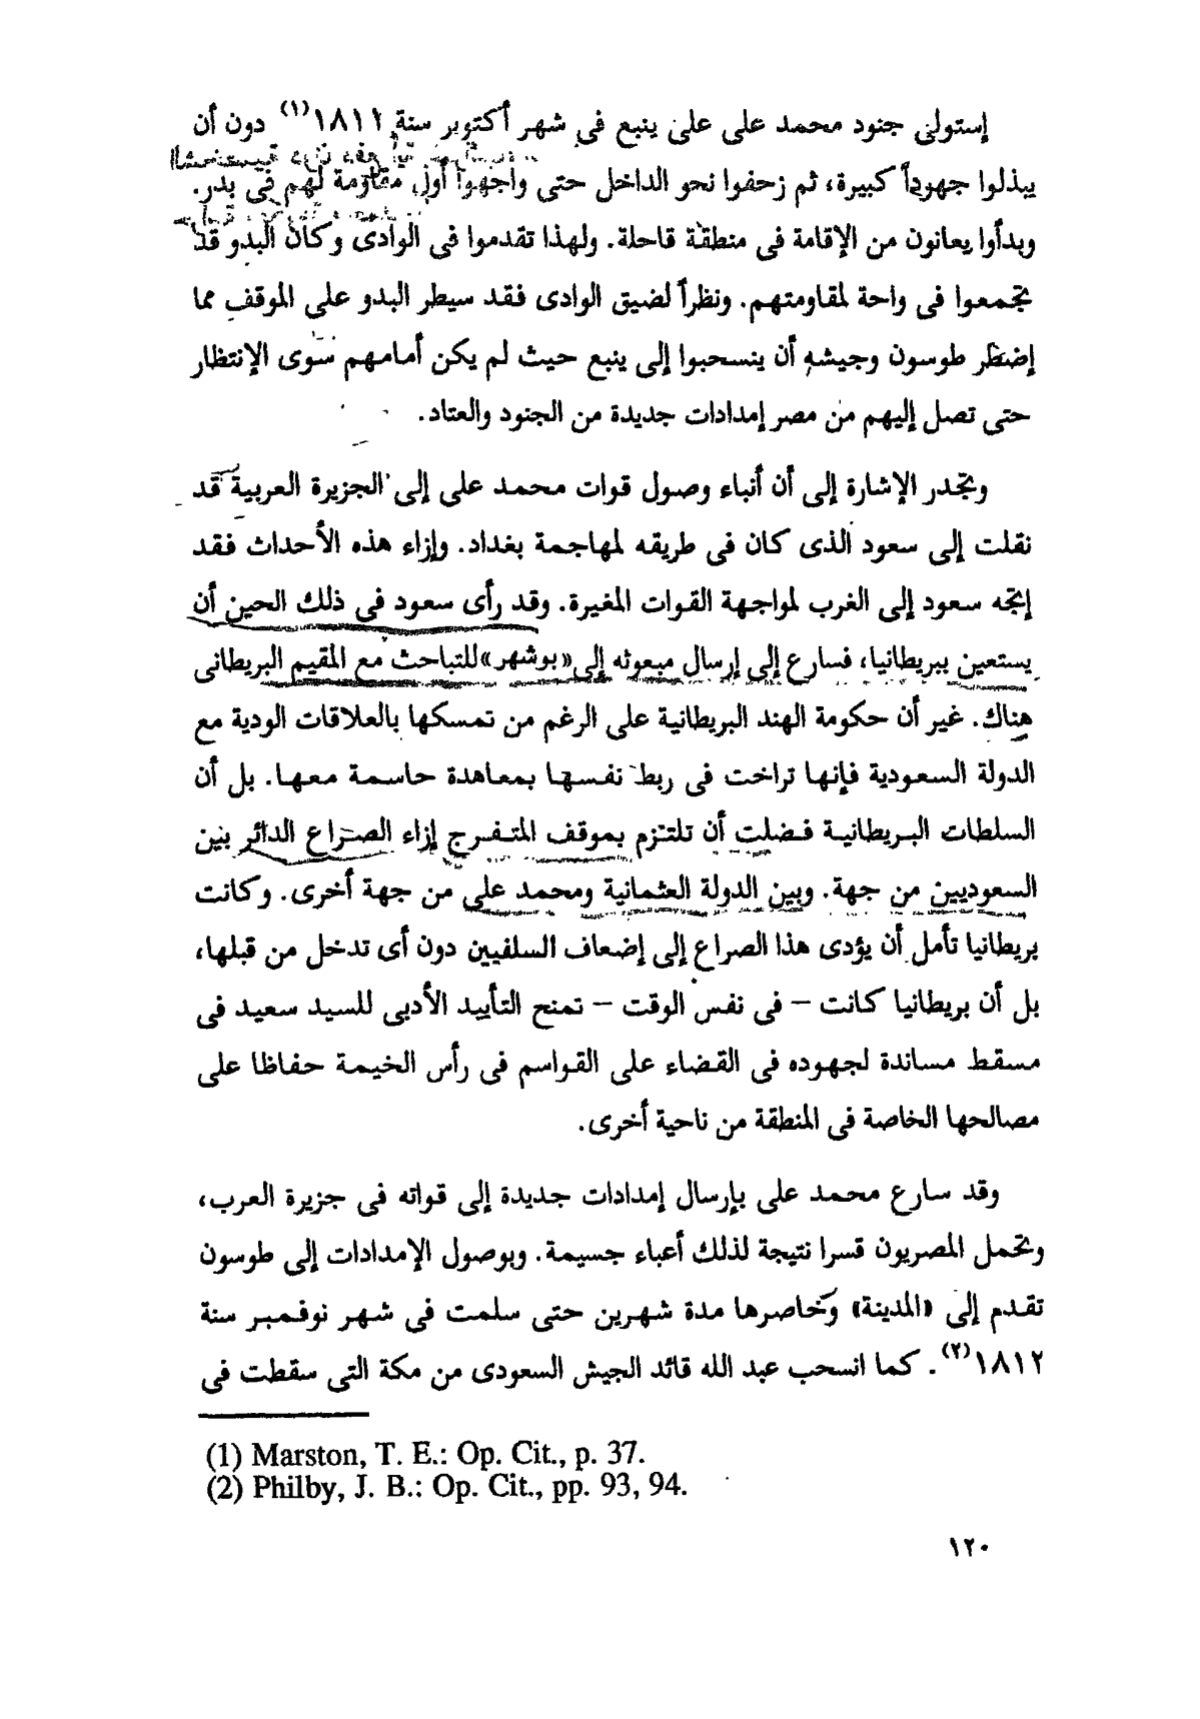 إستولى جنود محمد على على ينبع فى شهر أكتوبر سنة ١٨١١(١) دون أن
يبذلوا جهوداً كبيرة، ثم زحفوا نحو الداخل حتى واجهوا أول مقاومة لهم فى بدر.
وبدأوا يعانون من الإقامة فى منطقة قاحلة. ولهذا تقدموا فى الوادى وكان البدو قد
تجمعوا فى واحة لمقاومتهم. ونظراً لضيق الوادى فقد سيطر البدو على الموقف مما
إضطر طوسون وجيشه أن ينسحبوا إلى ينبع حيث لم يكن أمامهم سوى الإنتظار
حتى تصل إليهم من مصر إمدادات جديدة من الجنود والعتاد.
وتجدر الإشارة إلى أن أنباء وصول قوات محمد على إلى الجزيرة العربية قد
نقلت إلى سعود الذى كان فى طريقه لمهاجمة بغداد. وإزاء هذه الأحداث فقد
إتجه سعود إلى الغرب لمواجهة القوات المغيرة. وقد رأى سعود فى ذلك الحين أن
يستعين ببريطانيا، فسارع إلى إرسال مبعوثه إلى «بوشهر» للتباحث مع المقيم البريطانى
هناك. غير أن حكومة الهند البريطانية على الرغم من تمسكها بالعلاقات الودية مع
الدولة السعودية فإنها تراخت فى ربط نفسها بمعاهدة حاسمة معها. بل أن
السلطات البريطانية فضلت أن تلتزم بموقف المتفرج إزاء الصراع الدائر بين
السعوديين من جهة. وبين الدولة العثمانية ومحمد على من جهة أخرى. وكانت
بريطانيا تأمل أن يؤدى هذا الصراع إلى إضعاف السلفيين دون أى تدخل من قبلها،
بل أن بريطانيا كانت – فى نفس الوقت – تمنح التأييد الأدبى للسيد سعيد فى
مسقط مساندة لجهوده فى القضاء على القواسم فى رأس الخيمة حفاظا على
مصالحها الخاصة فى المنطقة من ناحية أخرى.
وقد سارع محمد على بإرسال إمدادات جديدة إلى قواته فى جزيرة العرب،
وتحمل المصريون قسرا نتيجة لذلك أعباء جسيمة. وبوصول الإمدادات إلى طوسون
تقدم إلى «المدينة» وحاصرها مدة شهرين حتى سلمت فى شهر نوفمبر سنة
١٨١٢(٢). كما انسحب عبد الله قائد الجيش السعودى من مكة التى سقطت فى
(1) Marston, T. E.: Op. Cit., p. 37.
(2) Philby, J. B.: Op. Cit., pp. 93, 94.
١٢٠